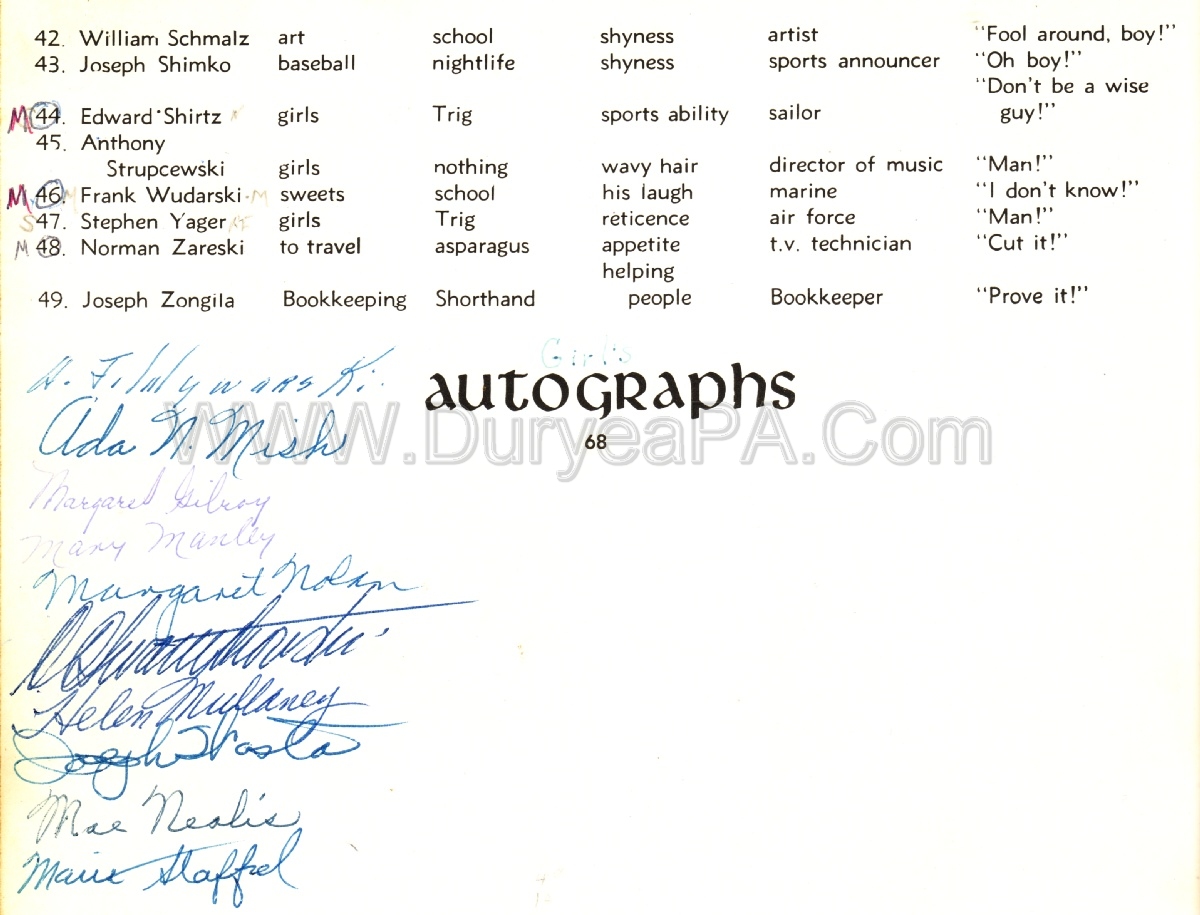 42. William Schmalz art school shyness artist "Fool around, boy!"
43. Joseph Shimko baseball nightlife shyness sports announcer "Oh boy!"
"Don't be a wise
M 44. Edward Shirtz girls Trig sports ability sailor guy!"
45. Anthony
Strupcewski girls nothing wavy hair director of music "Man!"
M 46. Frank Wudarski M sweets school his laugh marine "I don't know!"
S 47. Stephen Yager girls Trig reticence air force "Man!"
M 48. Norman Zareski to travel asparagus appetite t.v. technician "Cut it!"
helping
49. Joseph Zongila Bookkeeping Shorthand people Bookkeeper "Prove it!"
Girls
autographs
68
WWW.DuryeaPA.Com
Ada N. Mish
Margaret Gilroy
Mary Manley
Margaret Nolan
Helen Mullaney
Joseph Wasta
Mae Nealis
Marie Staffrel